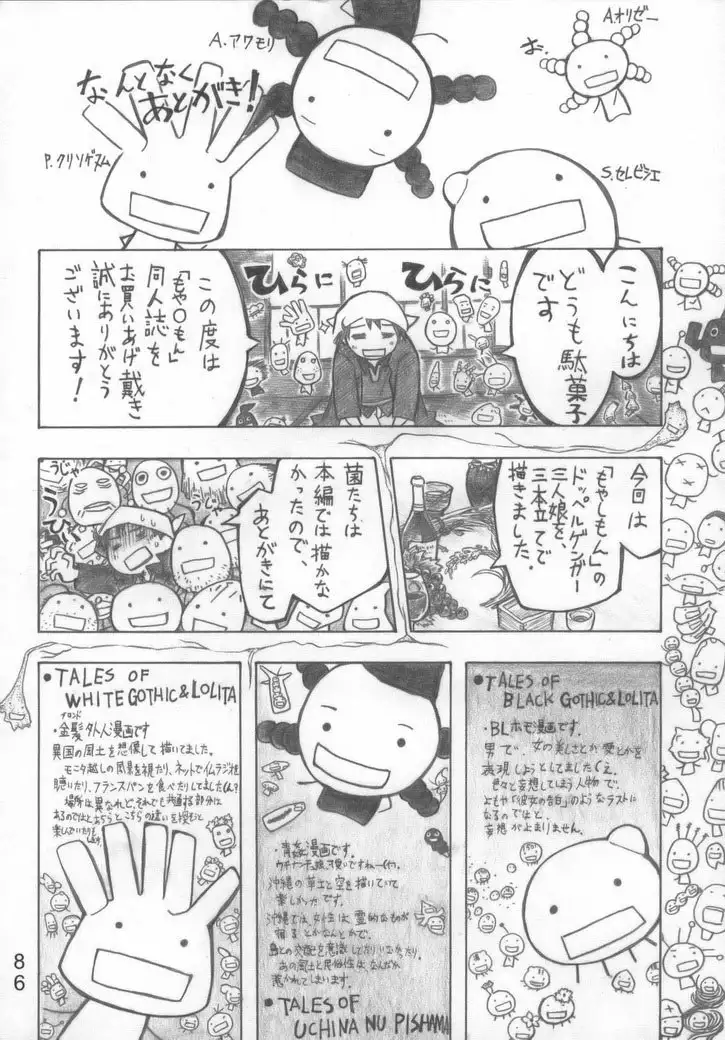 A.オリゼー
お。
A.アワモリ
なんとなく
あとがき!
P.クリソゲヌム
S.セレビシエ
こんにちは
どうも駄菓子
です
ひらに
ひらに
この度は
「もや〇もん」
同人誌を
お買いあげ戴き
誠にありがとう
ございます!
今回は
「もやしもん」の
ドッペルゲンガー
三人娘を、
三本立てで
描きました。
菌たちは
本編では描かな
かったので、
あとがきにて
うじゃ
うじゃ
•TALES OF
BLACK GOTHIC&LOLITA
・BLホモ漫画です.
男で、女の美しさとか愛とかを
表現しようとしてましたくえ
色々と妄想してしまう人物で、
よもや「彼女の告白」のようなラストに
なるのではと、
妄想が止まりません。
・青姦漫画です。
沖縄の草土と空を描いていて
楽しかったです。
沖縄では、女性は霊的なものが
宿るとかなんとかで、
島との交配を意識してたりなかったり。
あの風土と民俗性はなんだか
惹かれてしまいます。
•TALES OF
UCHINA NU PISHAMA
•TALES OF
WHITE GOTHIC&LOLITA
・金髪外人漫画です
ブロンド
異国の風土を想像して描いてました。
モニタ越しの風景を視たり、ネットでイムラジオを
聴いたり、フランスパンを食べたりしてました
場所は異なれど、それでも共通する部分は
あるのではと
86